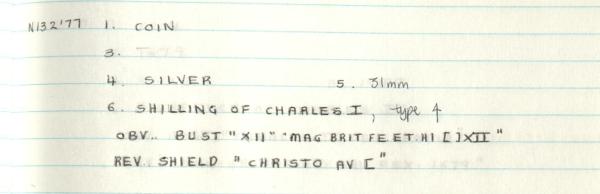 N132'77 1. COIN
3.
4. SILVER 5. 31mm
6. SHILLING OF CHARLES I, type 4
OBV.. BUST "XII" "MAG BRIT FE ET HI [ ] XII"
REV. SHIELD "CHRISTO AV ["